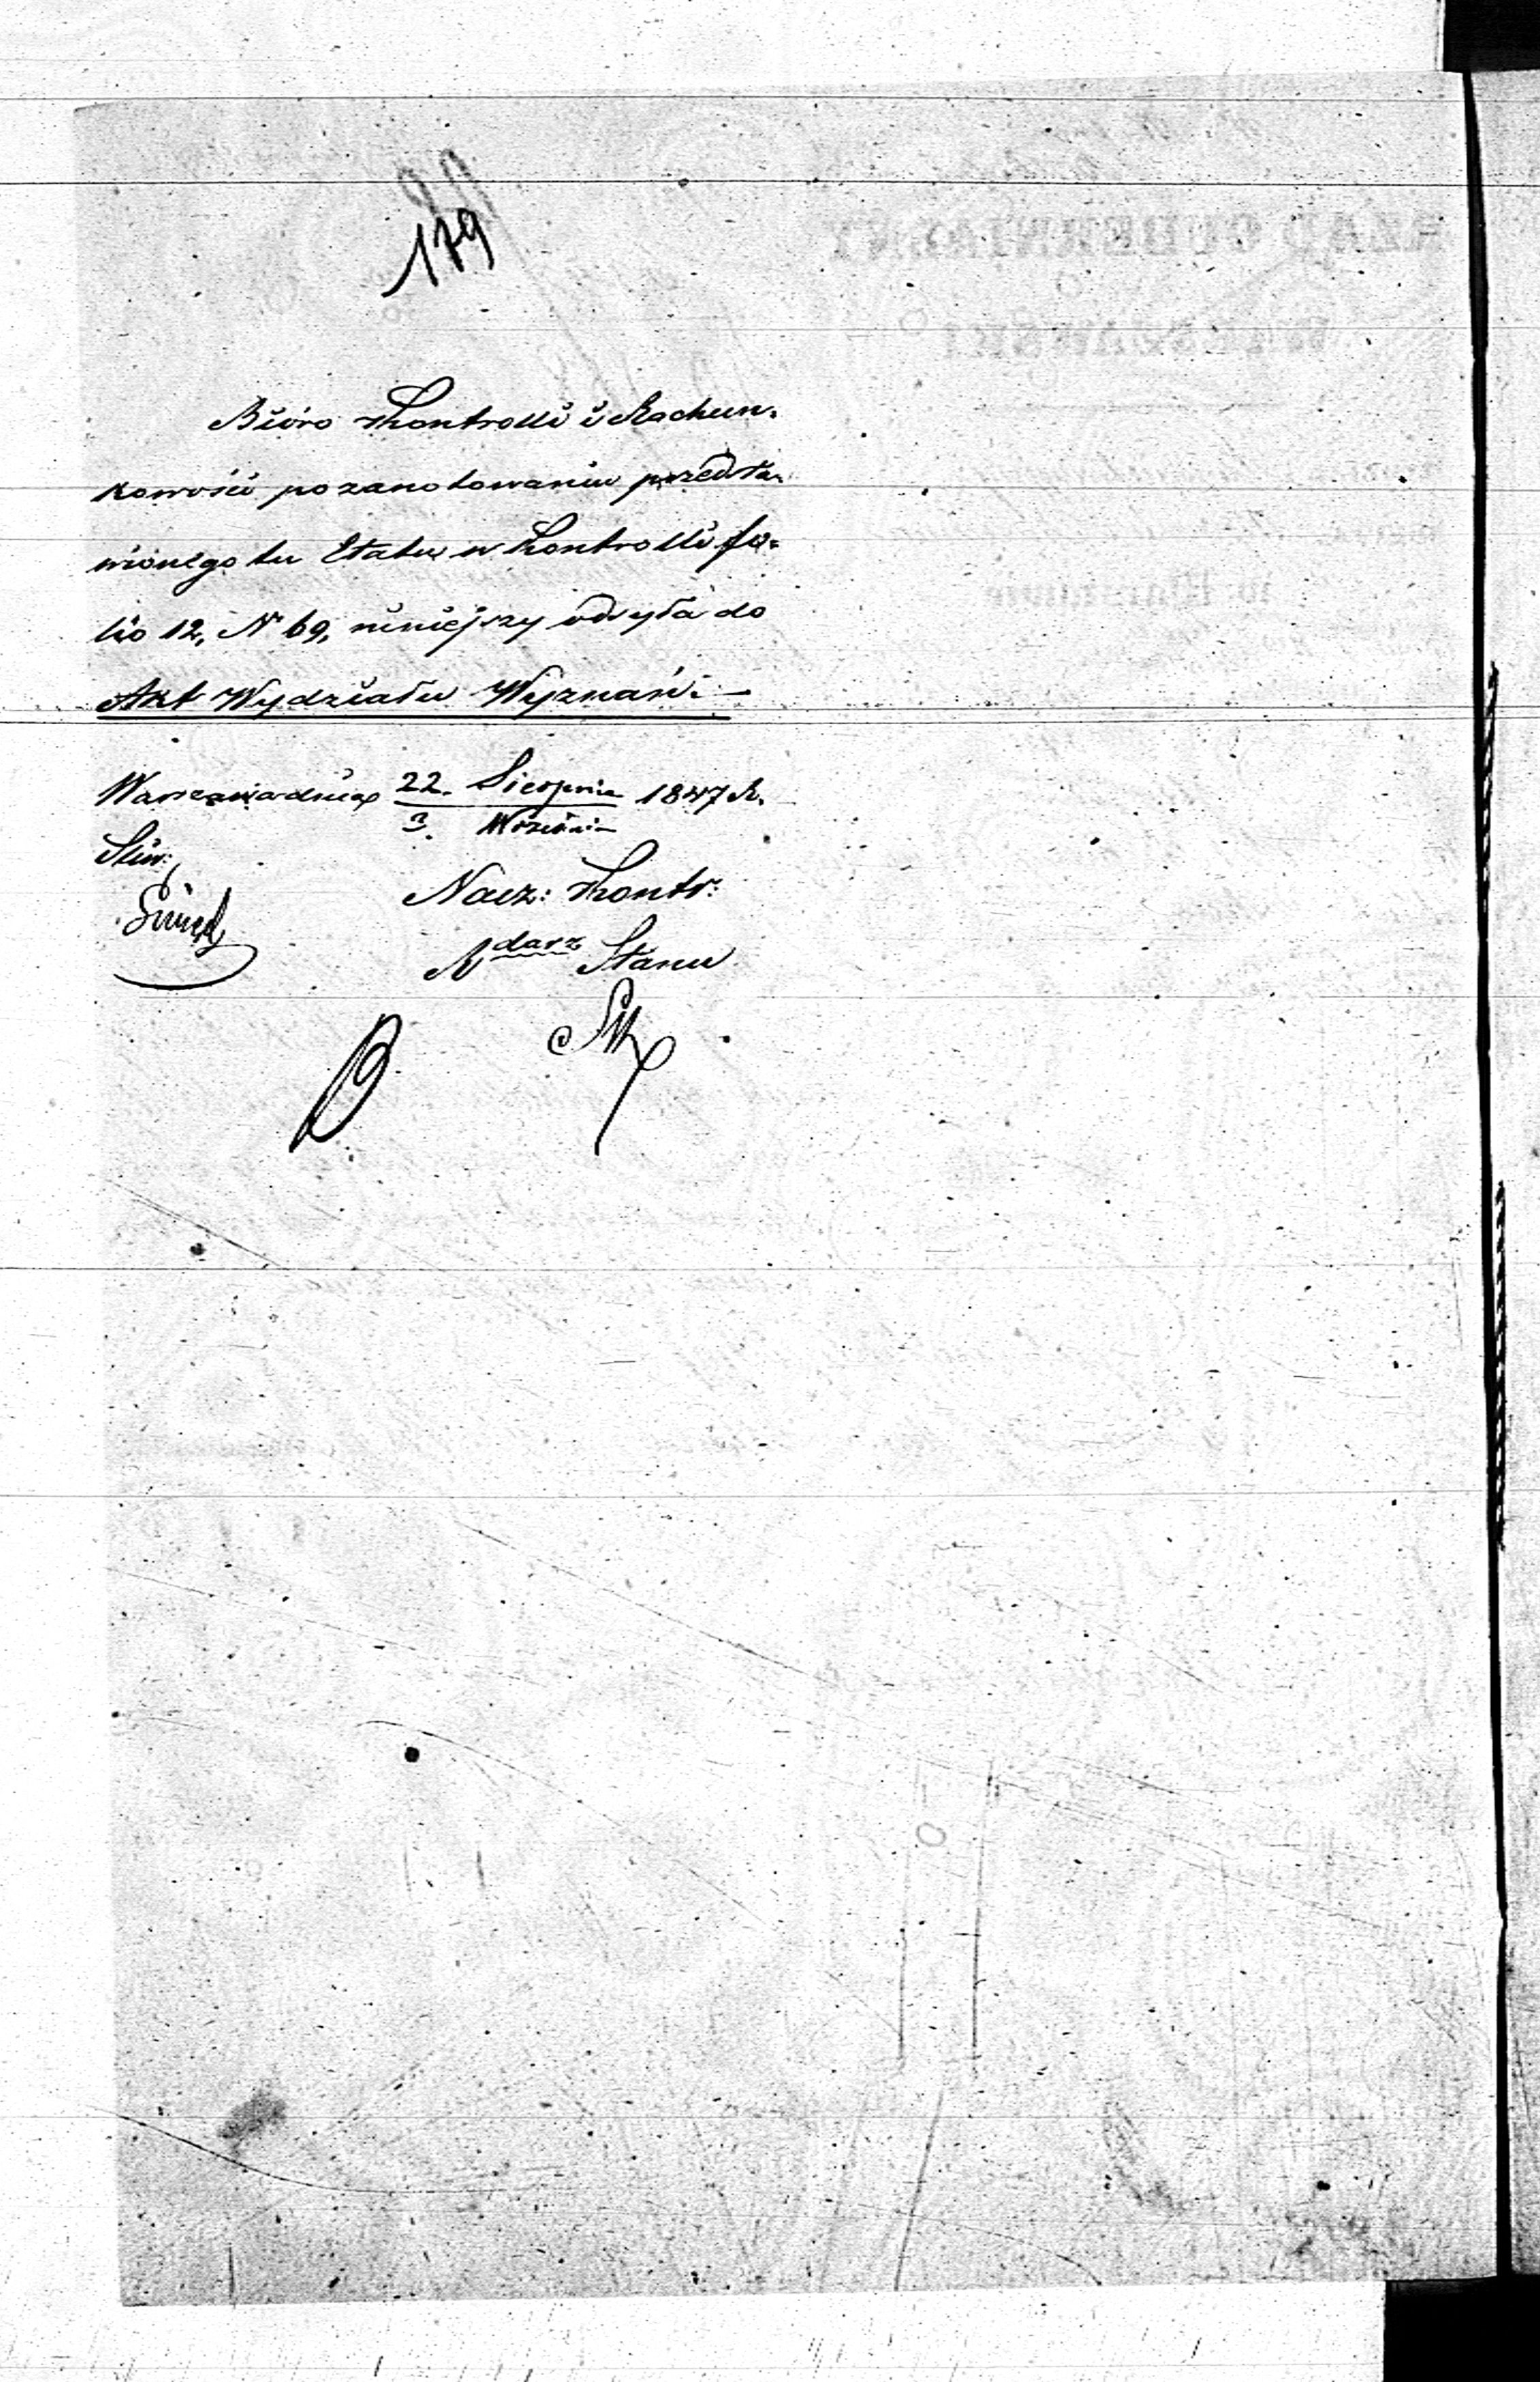 179
Biuro Kontrolli i Rachun-
kowości po zanotowaniu przedsta-
wionego tu Etatu w Kontrolli fo-
lio 12, N 69, niniejszy odsyła do
Akt Wydziału Wyznań.
Warszawa dnia 22. Sierpnia 1847 R.
3. Września
Nacz: Kontr:
Stanu